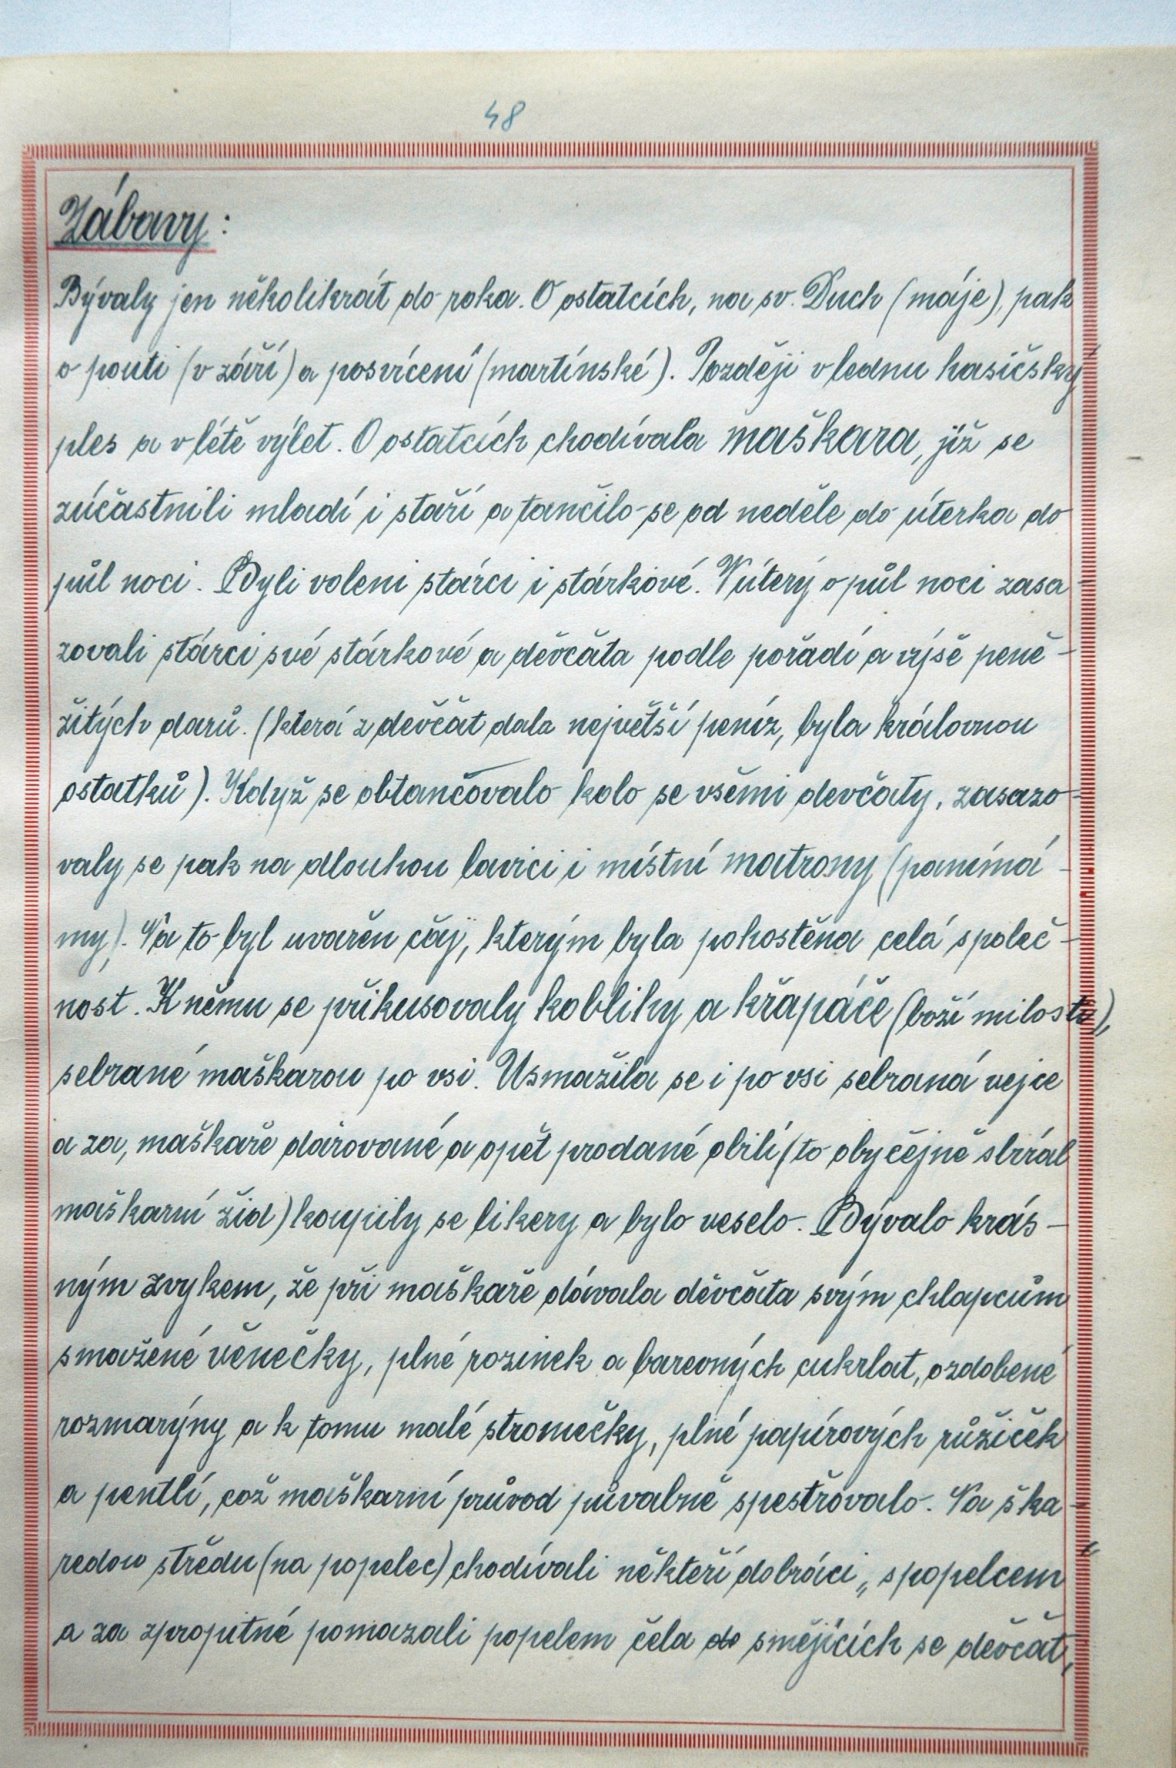 48
Zábavy:
Bývaly jen několikrát do roka. O ostatcích, na sv. Duch (máje), pak
o pouti (v září) a posvícení (martinské). Později v lednu hasičský
ples a v létě výlet. O ostatcích chodívala maškara, jíž se
zúčastnili mladí i staří a tančilo se od neděle do úterka do
půl noci. Byli voleni stárci i stárkové. V úterý o půl noci zasa-
zovali stárci své stárkové a děvčata podle pořadí a výše peně-
žitých darů. (která z děvčat dala největší peníz, byla královnou
ostatků). Když se obtancovalo kolo se všemi devčaty, zasazo-
valy se pak na dlouhou lavici i místní matrony (panímá-
my). Na to byl uvařen čaj, kterým byla pohostěna celá společ-
nost. K němu se přikusovaly koblihy a křapáče (boží milosti),
sebrané maškarou po vsi. Usmažila se i po vsi sebraná vejce
a za, maškaře darované a opět prodané obilí (to obyčejně sbíral
maškarní žid) koupily se likery a bylo veselo. Bývalo krás-
ným zvykem, že při maškaře dávala děvčata svým chlapcům
smažené věnečky, plné rozinek a barevných cukrlat, ozdobené
rozmarýny a k tomu malé stromečky, plné papírových růžiček
a pentlí, což maškarní průvod půvabně spestřovalo. Na ška-
redou středu (na popelec) chodívali někteří dobráci „s popelcem“
a za zpropitné pomazali popelem čela do smějících se děvčat,